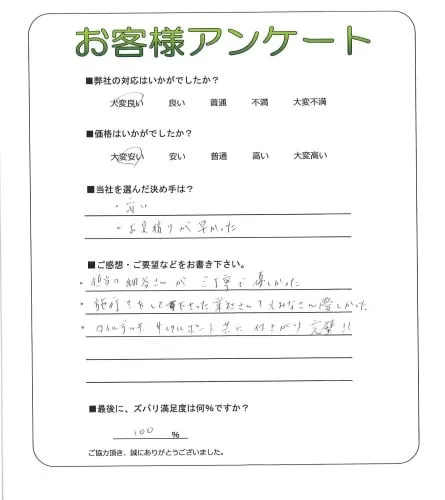 お客様アンケート
■弊社の対応はいかがでしたか？
大変良い 良い 普通 不満 大変不満
■価格はいかがでしたか？
大変安い 安い 普通 高い 大変高い
■当社を選んだ決め手は？
・安い
・お見積りが早かった
■ご感想・ご要望などをお書き下さい。
・担当の細谷さんがご丁寧で優しかった
・施工をして下さった業社さんもみなさん優しかった
・タイルデッキ サイクルポート共に仕上がり完璧!!
■最後に、ズバリ満足度は何%ですか？
100 %
ご協力頂き、誠にありがとうございました。